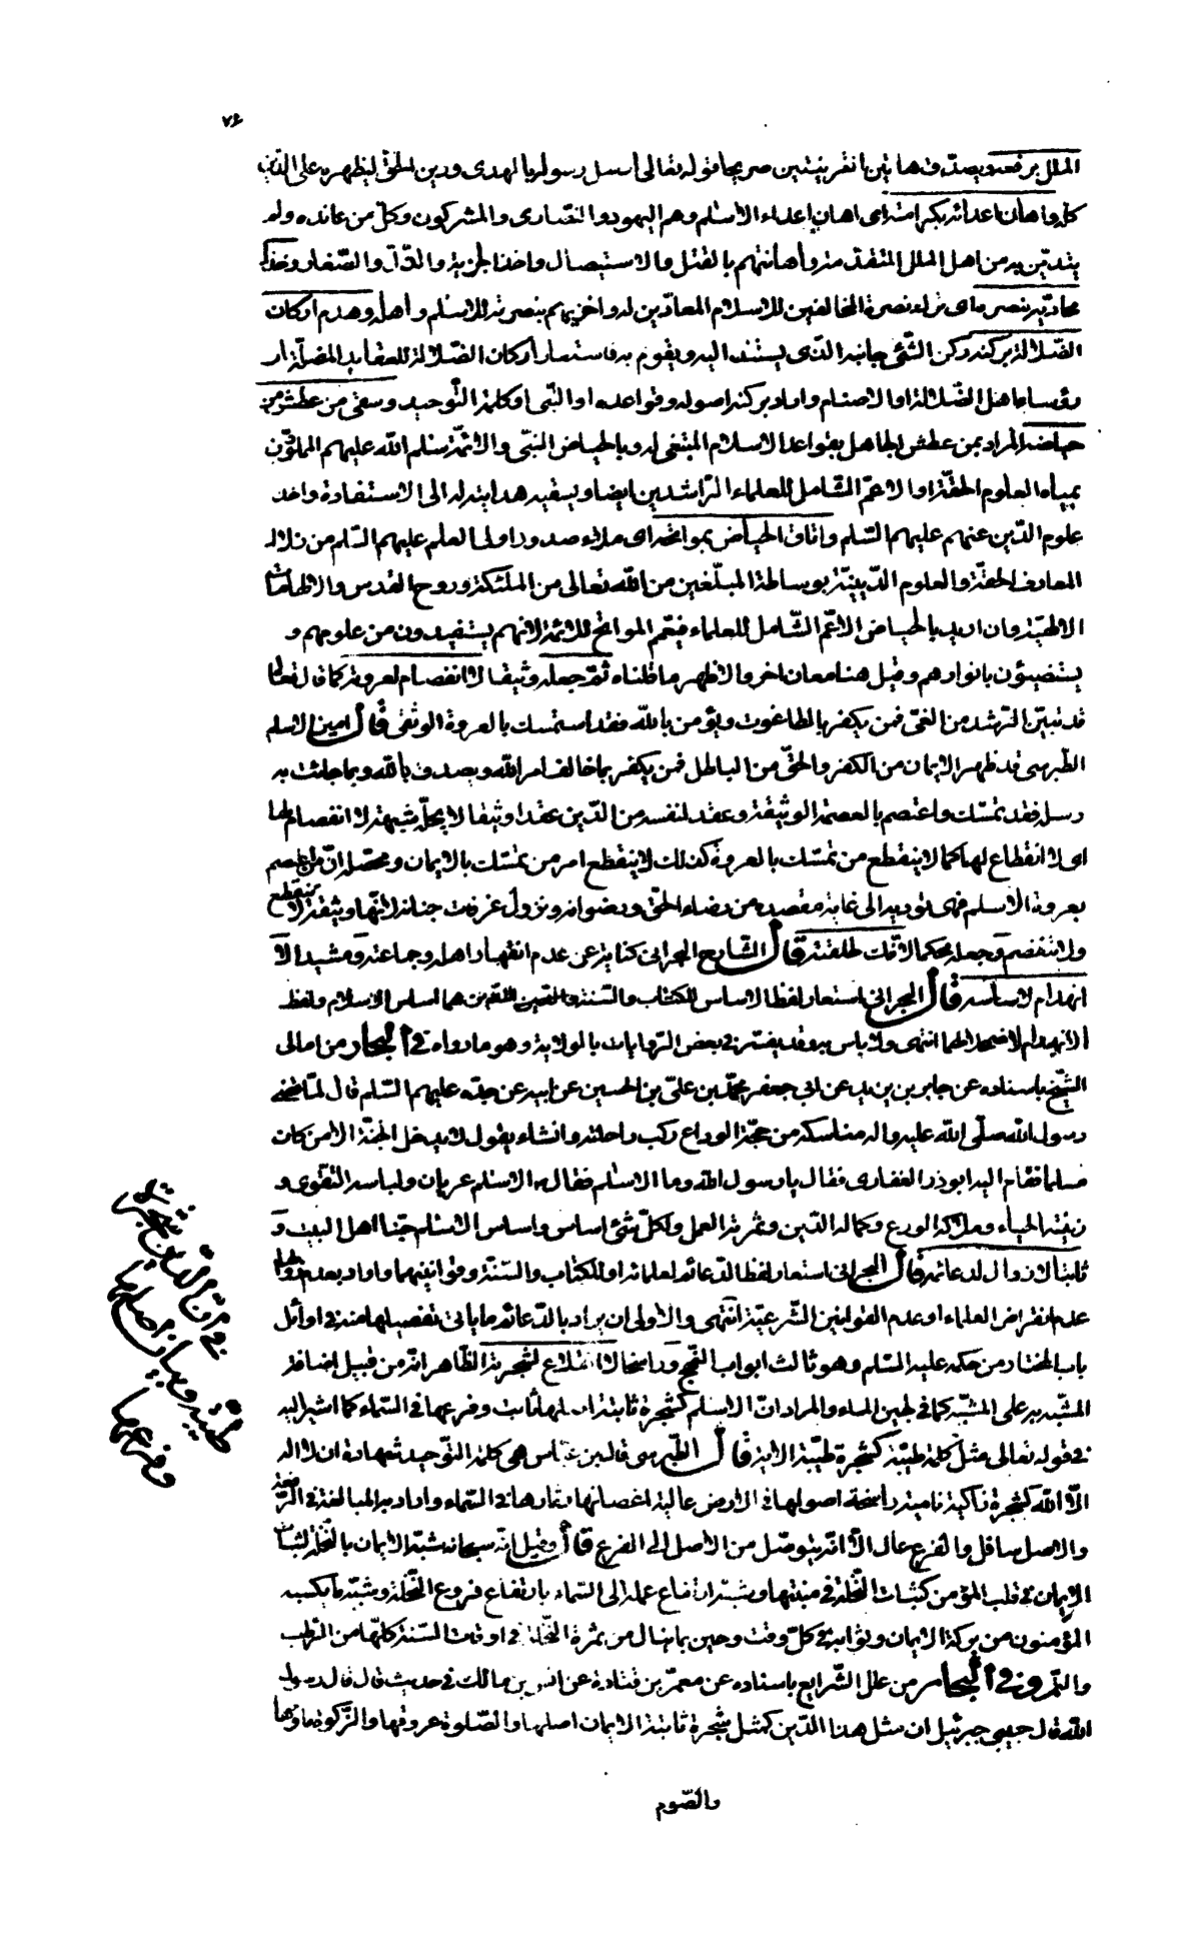 ٧۶
الملل برفعه ويصدّق هاتين القرينتين صريحا قوله تعالى ارسل رسوله بالهدى ودين الحق ليظهره على الدّين
كلّه واهان اعدائه بكرامته اى اهان اعداء الاسلام وهم اليهود والنّصارى والمشركون وكلّ من عانده ولم
يتديّن به من اهل الملل المتقدّمة واهانتهم بالقتل والاستيصال واخذ الجزية والذّلّ والصّغار وخذل
محادّيه بنصره اى ترك نصرة المخالفين للاسلام المعادّين له واخزيهم بنصرته للاسلام واهله وهدم اركان
الضّلالة بركنه ركن الشّئ جانبه الّذى يستند اليه ويقوم به فاستعار اركان الضّلالة للعقايد المضلّة او
رؤساء اهل الضّلالة او الاصنام واراد بركنه اصوله وقواعده او النّبى او كلمة التّوحيد وسقى من عطش من
حياضه المراد بمن عطش الجاهل بقواعد الاسلام المبتغى له وبالحياض النبىّ والائمّة سلام الله عليهم المملوّون
بمياه العلوم الحقّة او الاعمّ الشّامل للعلماء الرّاشدين ايضا وبسقيه هدايته له الى الاستفادة واخذ
علوم الدّين عنهم عليهم السّلم واتاق الحياض بمواتحه اى ملاء صدور اولى العلم عليهم السّلم من زلال
المعارف الحقّة والعلوم الدّينيّة بوساطة المبلّغين من الله تعالى من الملئكة وروح القدس والالهامات
الالهيّة وان اريد بالحياض الاعمّ الشّامل للعلماء فيعمّ المواتح للائمة لانهم يستفيدون من علومهم و
يستضيئون بانوارهم وقيل هنا معان اخر والاظهر ما قلناه ثمّ جعله وثيقا لا انفصام لعروته كما قال تعالى
قد تبيّن الرّشد من الغىّ فمن يكفر بالطاغوت ويؤمن بالله فقد استمسك بالعروة الوثقى قال امين الاسلم
الطبرسى قد ظهر الايمان من الكفر والحقّ من الباطل فمن يكفر بما خالف امر الله ويصدق بالله وبما جائت به
رسله فقد تمسّك واعتصم بالعصمة الوثيقة وعقد لنفسه من الدّين عقدا وثيقا لا يحلّه شبهة لا انفصام لها
اى لا انقطاع لها كما لا ينقطع من تمسّك بالعروة كذلك لا ينقطع امر من تمسّك بالايمان ومحصّله انّ من اعتصم
بعروة الاسلم فهى تؤديه الى غاية مقصده من رضاء الحقّ ورضوانه ونزول غرفات جنانه لانّها وثيقة لا ينقطع
ولا تنفصم وجعله محكما لا فكّ لحلقته قال الشارح البحرانى كناية عن عدم انقهار اهله وجماعته ومشيدا لا
انهدام لاساسه قال البحرانى استعار لفظ الاساس للكتاب والسّنة اللذين هما اساس الاسلام ولفظ
الانهدام لاضمحلالهما انتهى ولا باس به وقد يفسّر فى بعض الرّوايات بالولاية وهو ما رواه فى البحار من امالى
الشّيخ باسناده عن جابر بن يزيد عن ابى جعفر محمّد بن علىّ بن الحسين عن ابيه عن جدّه عليهم السّلم قال لمّا قضى
رسول الله صلّى الله عليه واله مناسكه من حجّة الوداع ركب راحلته وانشاء يقول لا يدخل الجنّة الا من كان
مسلما فقام اليه ابوذر الغفارى فقال يا رسول الله وما الاسلم فقال ص الاسلم عريان ولباسه التّقوى و
زينته الحياء وملاكه الورع وكماله الدّين وثمرته العمل ولكلّ شئ اساس واساس الاسلم حبّنا اهل البيت و
ثابتا لا زوال لدعائمه قال البحرانى استعار لفظ الدّعائم لعلمائه او للكتاب والسّنّة وقوانينهما واراد بعدم زوالها
عدم انقراض العلماء او عدم القوانين الشّرعيّة انتهى والاولى ان يراد بالدّعائم ما ياتى تفصيلها منه فى اوائل
باب المختار من حكمه عليه السّلم وهو ثالث ابواب النّهج وراسخا لا انقلاع لشجرته الظّاهر انّه من قبيل اضافة
المشبّه به على المشبّه كما فى لجين الماء والمراد انّ الاسلم كشجرة ثابتة اصلها ثابت وفرعها فى السّماء كما اشير اليه
فى قوله تعالى مثل كلمة طيّبة كشجرة طيّبة الاية قال الطّبرسى قال ابن عبّاس هى كلمة التّوحيد شهادة ان لا اله
الّا الله كشجرة زاكية نامية راسخة اصولها فى الارض عالية اغصانها وثمارها فى السّماء واراد به المبالغة فى الرّفعة
والاصل سافل والفرع عال الّا انّه يتوصّل من الاصل الى الفرع قال وقيل انّه سبحانه شبّه الايمان بالنّخلة لثبات
الايمان فى قلب المؤمن كثبات النّخلة فى منبتها وشبّه ارتفاع عمله الى السّماء بارتفاع فروع النّخلة وشبّه ما يكسبه
المؤمنون من بركة الايمان وثوابه فى كلّ وقت وحين بما ينال من ثمرة النّخلة فى اوقات السّنة كلّها من الرّطب
والتّمر وفى البحار من علل الشّرايع باسناده عن معمّر بن قتادة عن انس بن مالك فى حديث قال قال رسول
الله قال حبيبى جبرئيل ان مثل هذا الدّين كمثل شجرة ثابتة الايمان اصلها والصّلوة عروقها والزّكوة ماؤها
والصّوم
فى انّ الدين شجرة
طيّبة وبيان اصلها
وفرعها